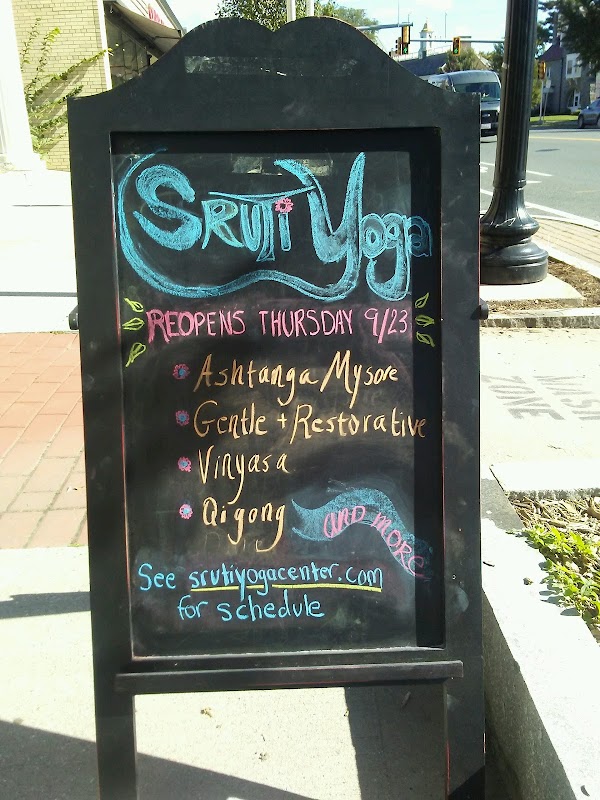 Sruti Yoga
REOPENS THURSDAY 9/23
Ashtanga Mysore
Gentle + Restorative
Vinyasa
Qigong
AND MORE
See srutiyogacenter.com
for schedule
ZONE